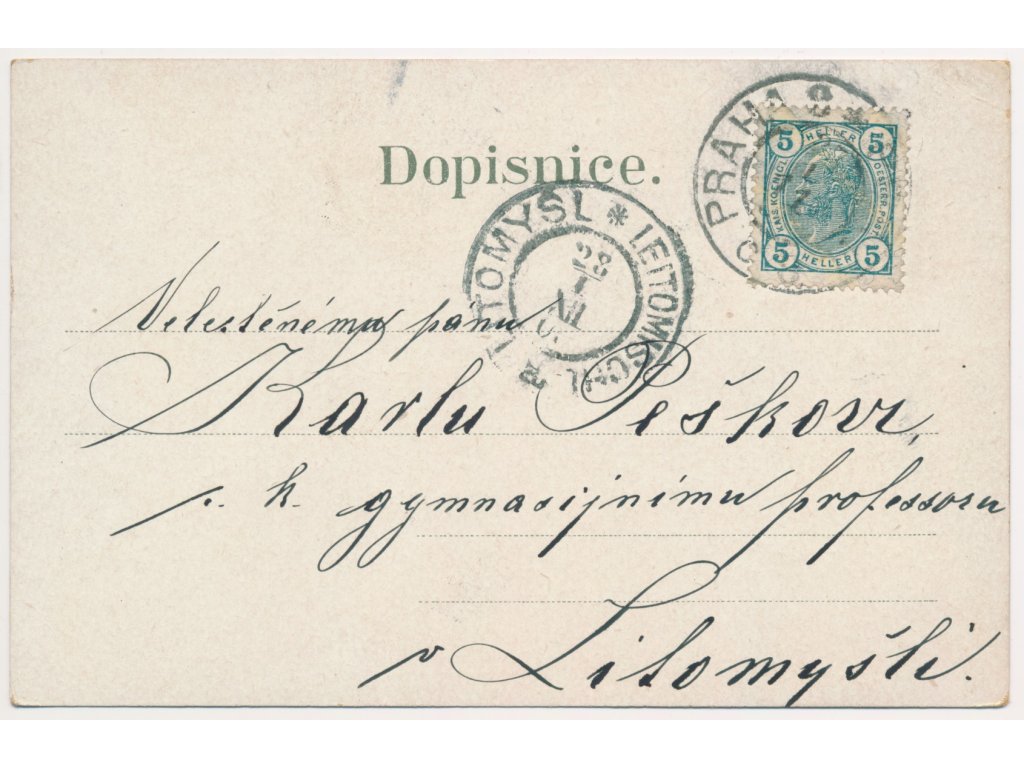 Dopisnice.
PRAHA 8 *
5 HELLER 5
KAIS. KOENIGL. OESTERR. POST.
5 HELLER 5
LITOMYŠL * LEITOMISCHL *
23
VII
Velectěnému pánu
Karlu Peškovi,
c. k. gymnasijnímu professoru
v Litomyšli.